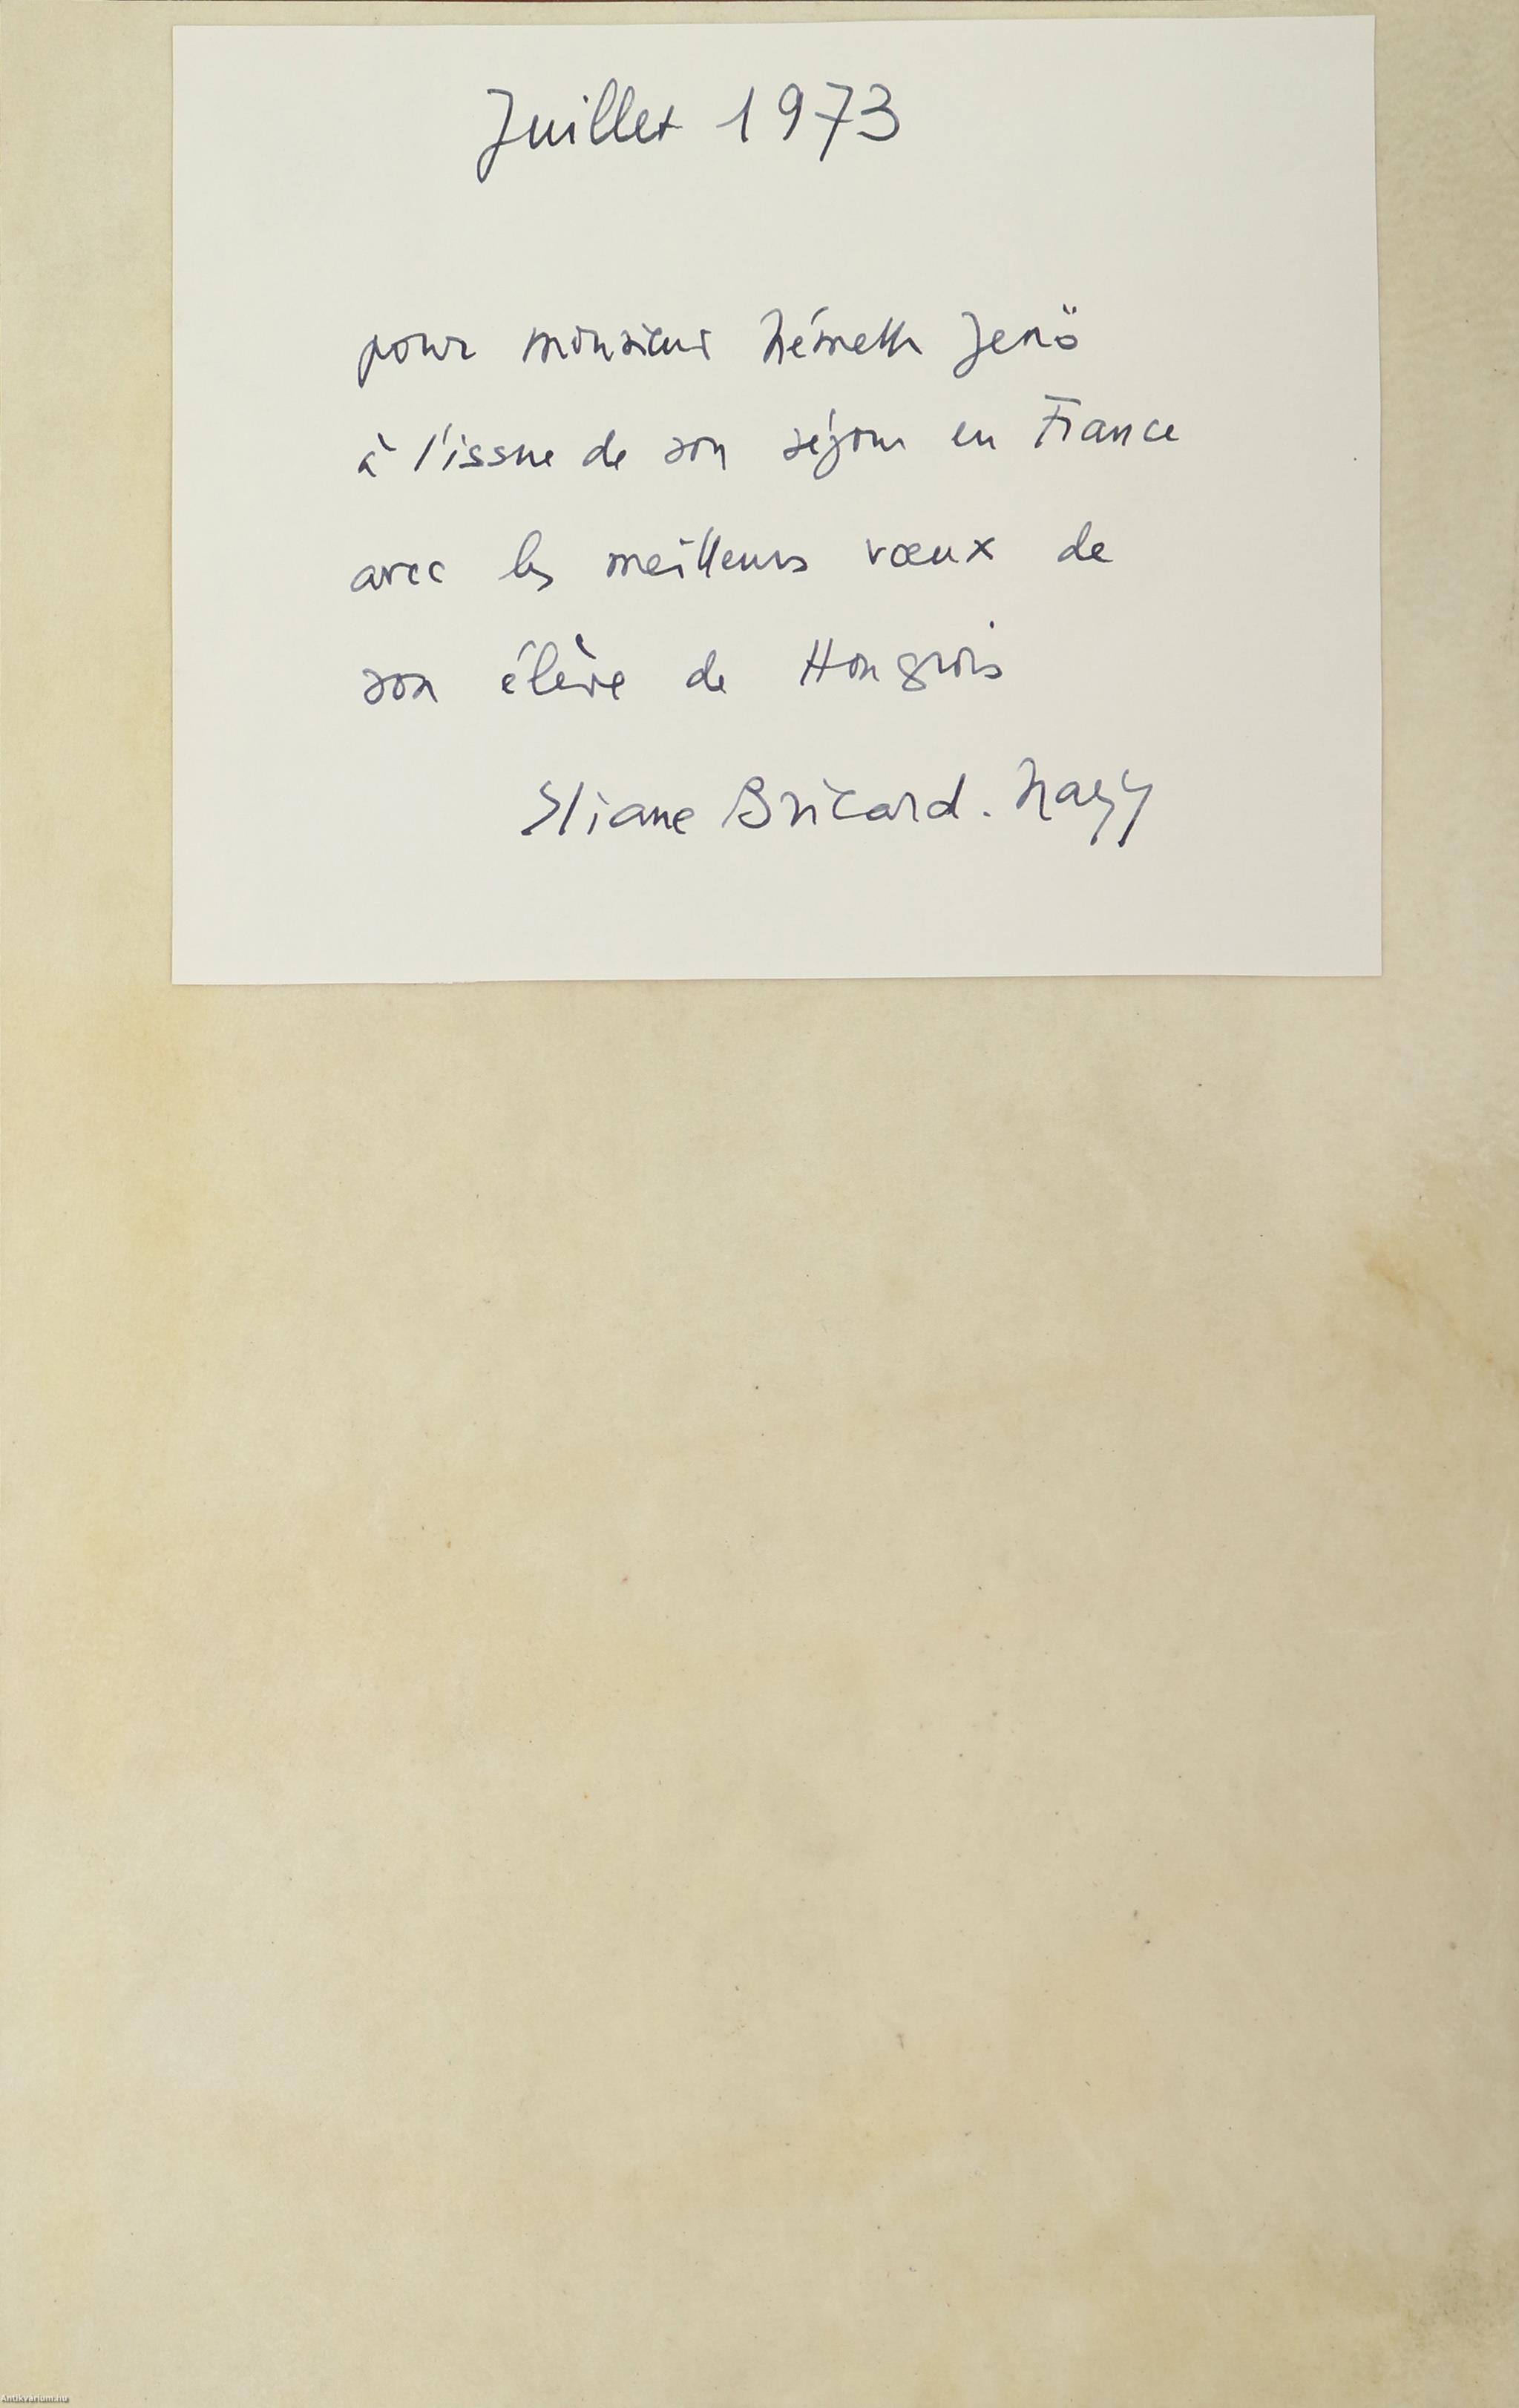 Juillet 1973
pour monsieur Németh Jenö
à l'issue de son séjour en France
avec les meilleurs vœux de
son élève de Hongrois
Eliane Bricard. Nagy
Antikvarium.hu